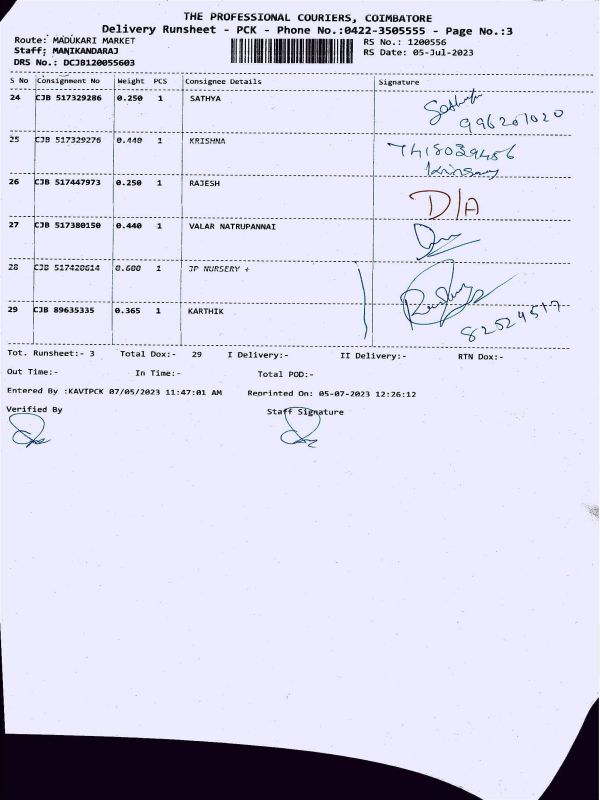 THE PROFESSIONAL COURIERS, COIMBATORE
Delivery Runsheet - PCK - Phone No.:0422-3505555 - Page No.:3
Route: MADUKARI MARKET RS No.: 1200556
Staff: MANIKANDARAJ RS Date: 05-Jul-2023
DRS No.: DCJB120055603
S No Consignment No Weight PCS Consignee Details Signature
24 CJB 517329286 0.250 1 SATHYA
996201020
25 CJB 517329276 0.440 1 KRISHNA
26 CJB 517447973 0.250 1 RAJESH D/A
27 CJB 517380150 0.440 1 VALAR NATRUPANNAI
28 CJB 517420614 0.600 1 JP NURSERY +
29 CJB 89635335 0.365 1 KARTHIK
Tot. Runsheet:- 3 Total Dox:- 29 I Delivery:- II Delivery:- RTN Dox:-
Out Time:- In Time:- Total POD:-
Entered By :KAVIPCK 07/05/2023 11:47:01 AM Reprinted On: 05-07-2023 12:26:12
Verified By Staff Signature